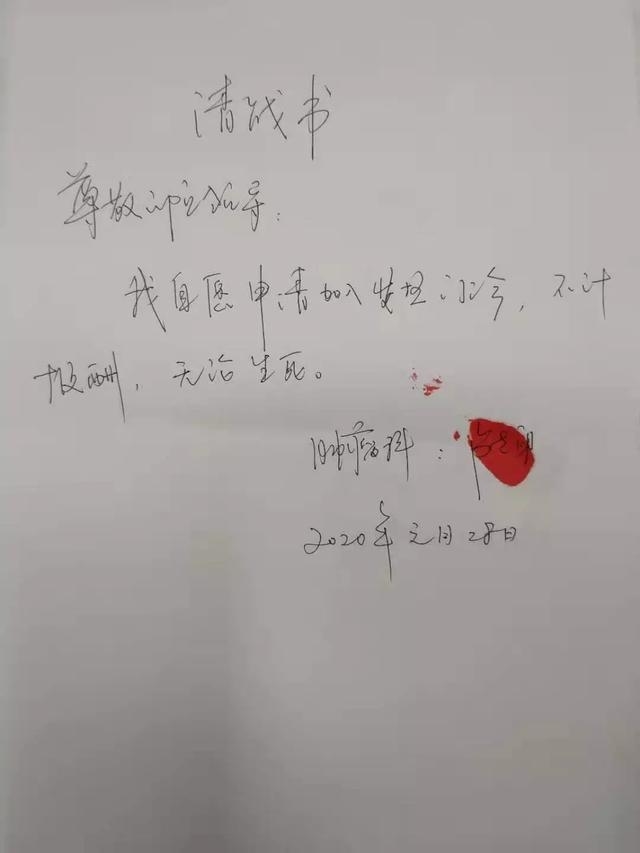 请战书
尊敬的院领导:
我自愿申请加入发热门诊,不计
报酬,无论生死。
肿瘤科:
2020年元月28日